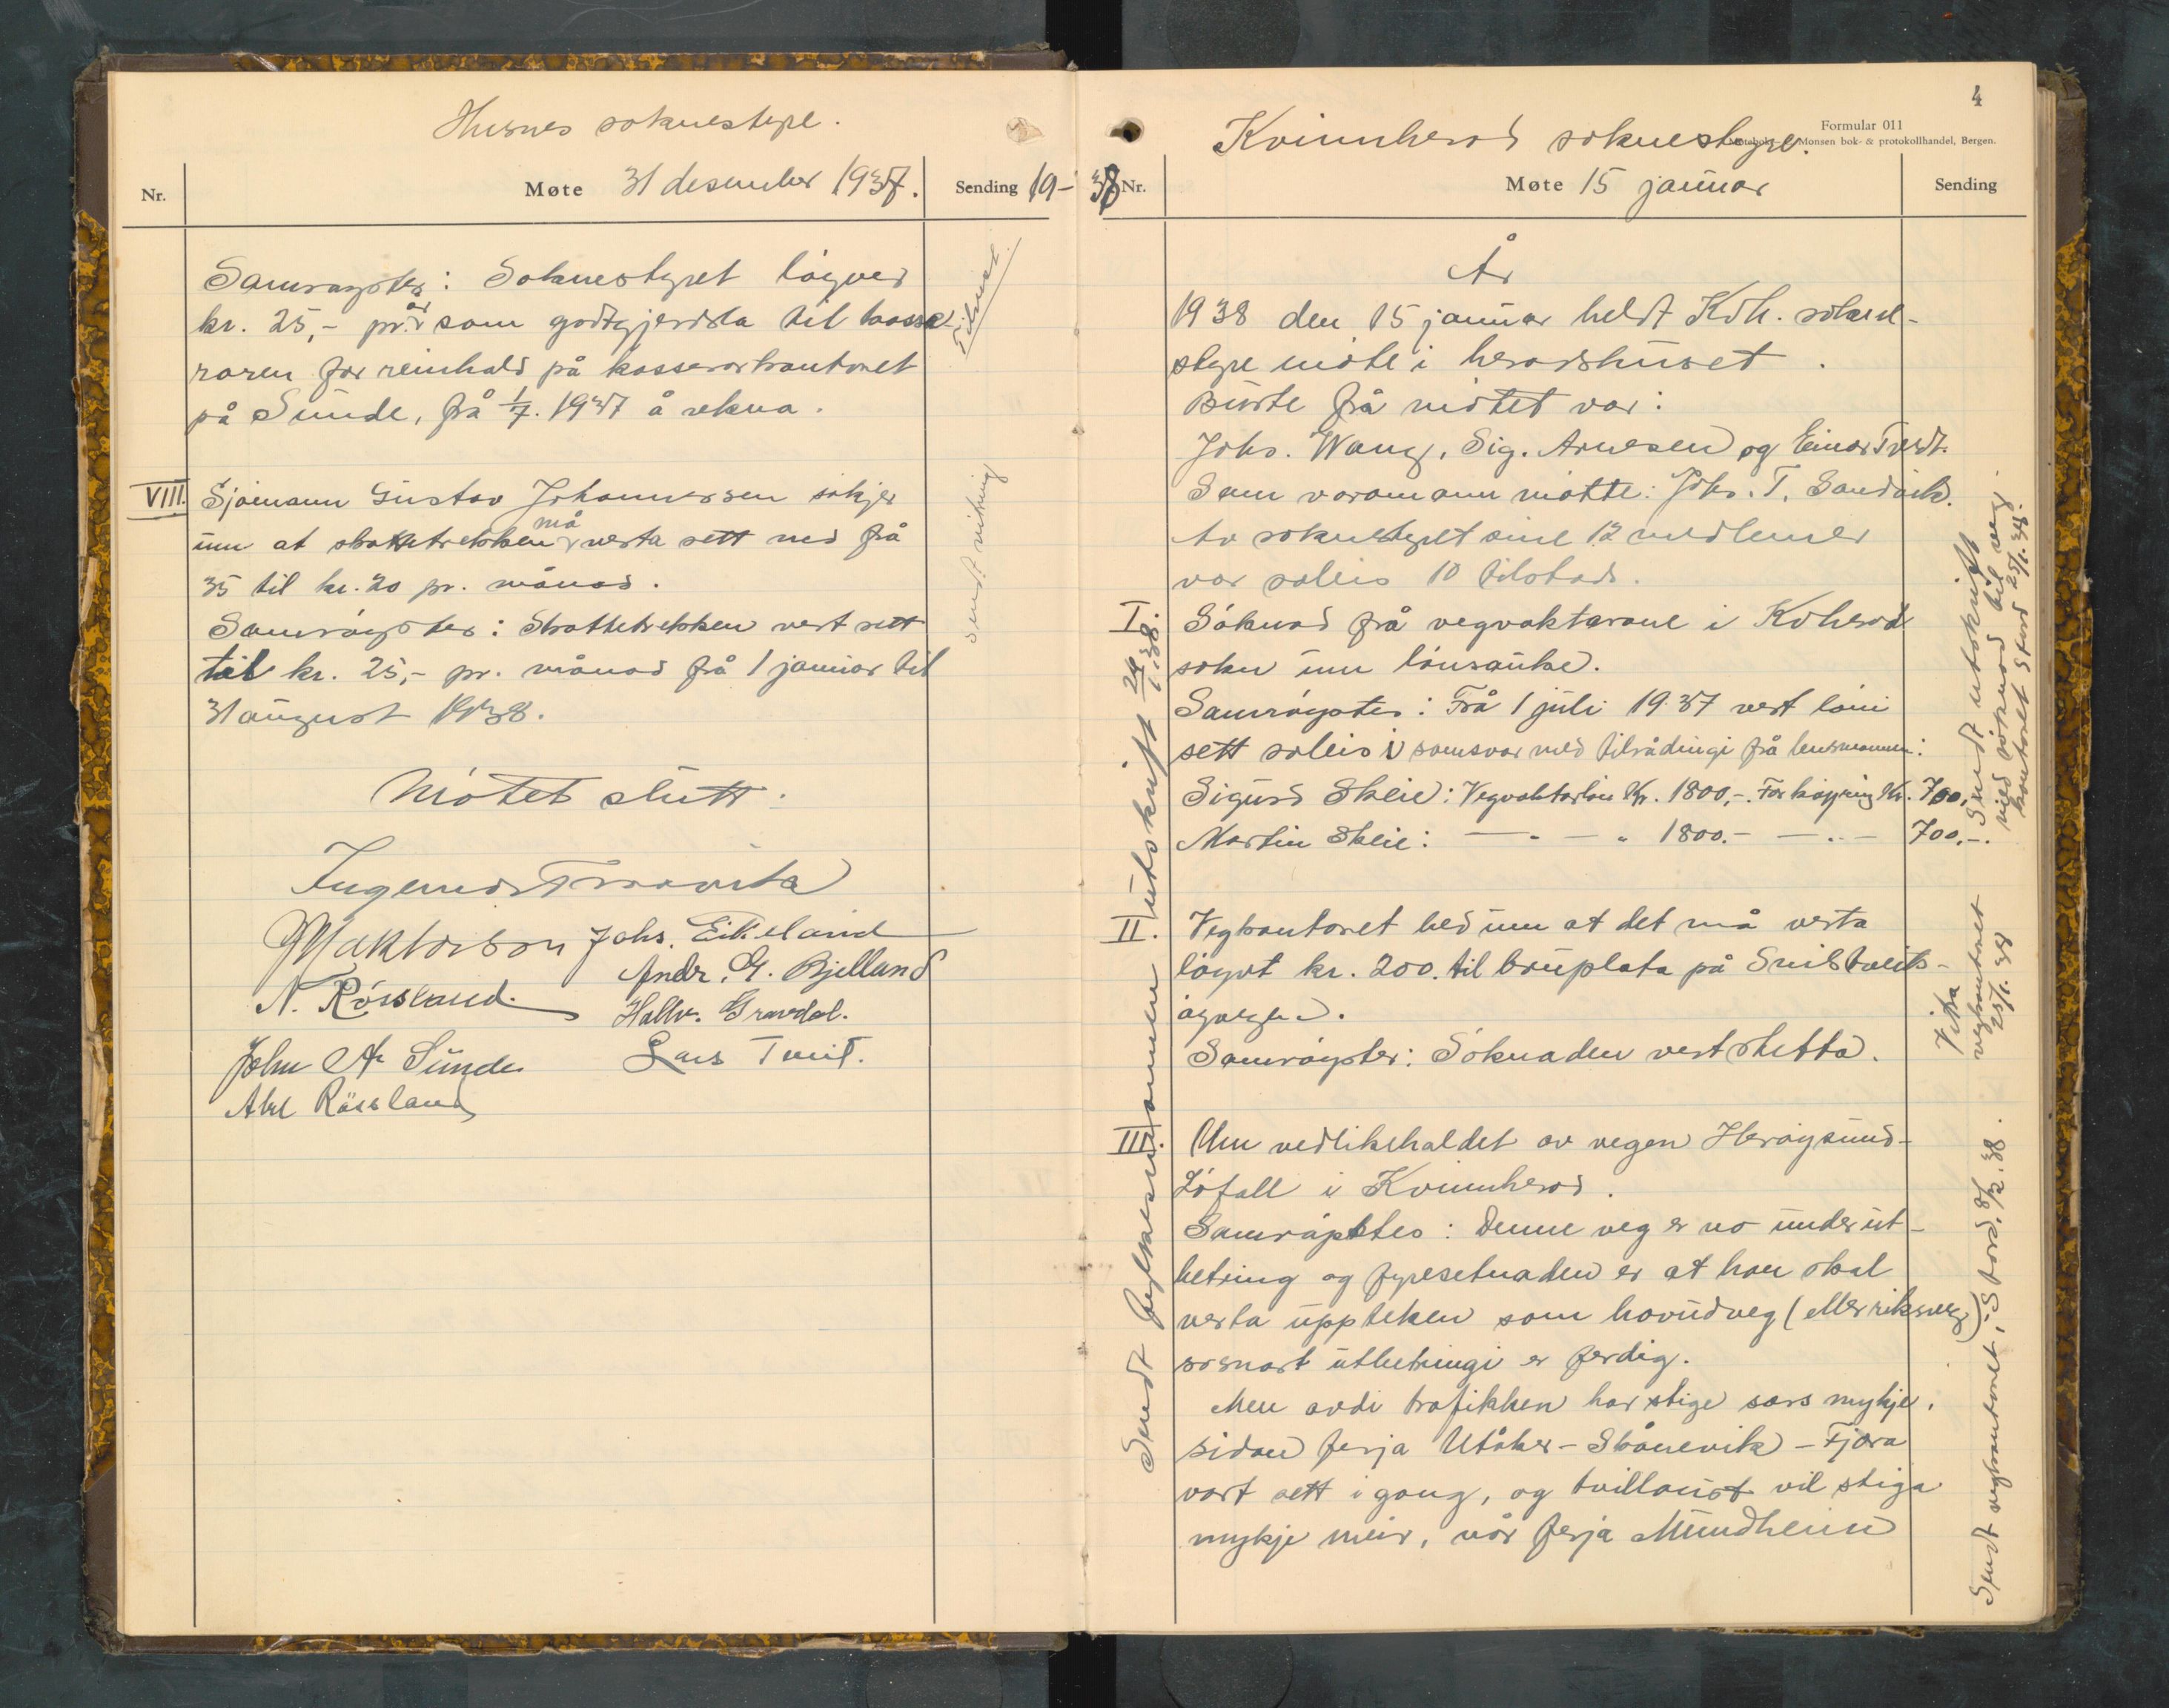 Husnes soknestyre.
Nr.
Møte 31 desember 1937.
Sending 19-
Samrøystes: Soknestyret løyver
kr. 25,- pr. år som godtgjersla til kasse-
raren for reinhald på kasserarkontoret
på Sunde, frå 1/7. 1937 å rekna.
VIII. Sjømann Gustav Johannessen søkjer
um at skattetrekken må verta sett ned frå
35 til kr. 20 pr. månad.
Samrøystes: Skattetrekken vert sett
til kr. 25,- pr. månad frå 1 januar til
31 august 1938.
sendt
Møtet slutt.
Johs. Eikeland
Andr. G. Bjelland
N. Røssland.
Hallv. Gravdal.
John A Sunde
Lars Tveit.
Abel Røssland
4
Formular 011
Monsen bok- & protokollhandel, Bergen.
Kvinnherad soknestyre.
38 Nr.
Møte 15 januar
Sending
År
1938 den 15 januar heldt Kvh. sokne-
styre møte i heradshuset.
Burte frå møtet var:
Johs. Wang, Sig. Arnesen og Einar Tvedt.
Som varamann møtte: Johs. T. Sandvik.
Av soknestyret sine 12 medlemer
var soleis 10 tilstads.
I. Søknad frå vegvaktarane i Kvherad
sokn um lønsauke.
Samrøystes: Frå 1 juli 1937 vert løni
sett soleis i samsvar med tilrådingi frå lensmannen:
Sigurd Skeie: Vegvaktarløn Kr. 1800,-. For køyring Kr. 700,-
Martin Skeie: — " — " 1800.- — " — 700.-.
II. Vegkontoret bed um at det må verta
løyvt kr. 200. til bruplata på
øyvegen.
Samrøystes: Søknaden vert stetta.
III. Um vedlikehaldet av vegen Herøysund-
Løfall i Kvinnherad.
Samrøystes: Denne veg er no under ut-
betring og fyresetnaden er at han skal
verta uppteken som hovudveg (eller riksveg)
so snart utbetringi er ferdig.
Men avdi trafikken har stige sers mykje,
sidan ferja Utåker-Skånevik-Fjæra
vart sett i gang, og tvillaust vil stiga
mykje meir, når ferja Mundheim
Sendt fylkesmannen utskrift 24/1.38.
Sendt utskrift
med søknad til veg-
kontoret Stord 25/1. 38.
vegkontoret
25/1. 38
Sendt vegkontoret i Stord. 8/2. 38.